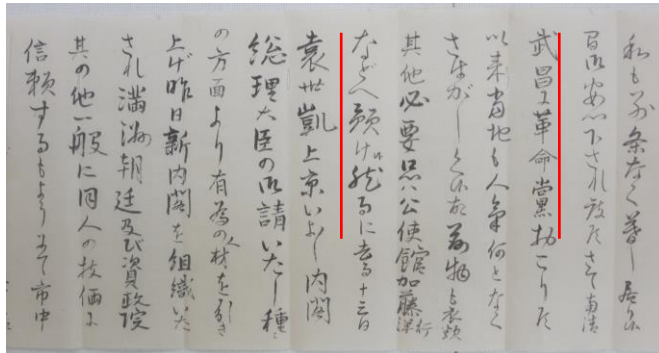 私も別条なく暮し居り候
間御安心下され度候さて南清
武昌に革命黨おこりた
以来当地も人気何となく
さわがしく候故荷物も衣類
其他必要品ハ公使館加藤洋行
などへ預け候然るに去る十三日
袁世凱上京いよ〱内閣
総理大臣の御請いたし種々
の方面より有為の人材を引き
上げ昨日新内閣を組織いた
され満洲朝廷及び資政院
其の他一般に同人の技倆に
信頼するもようにて市中